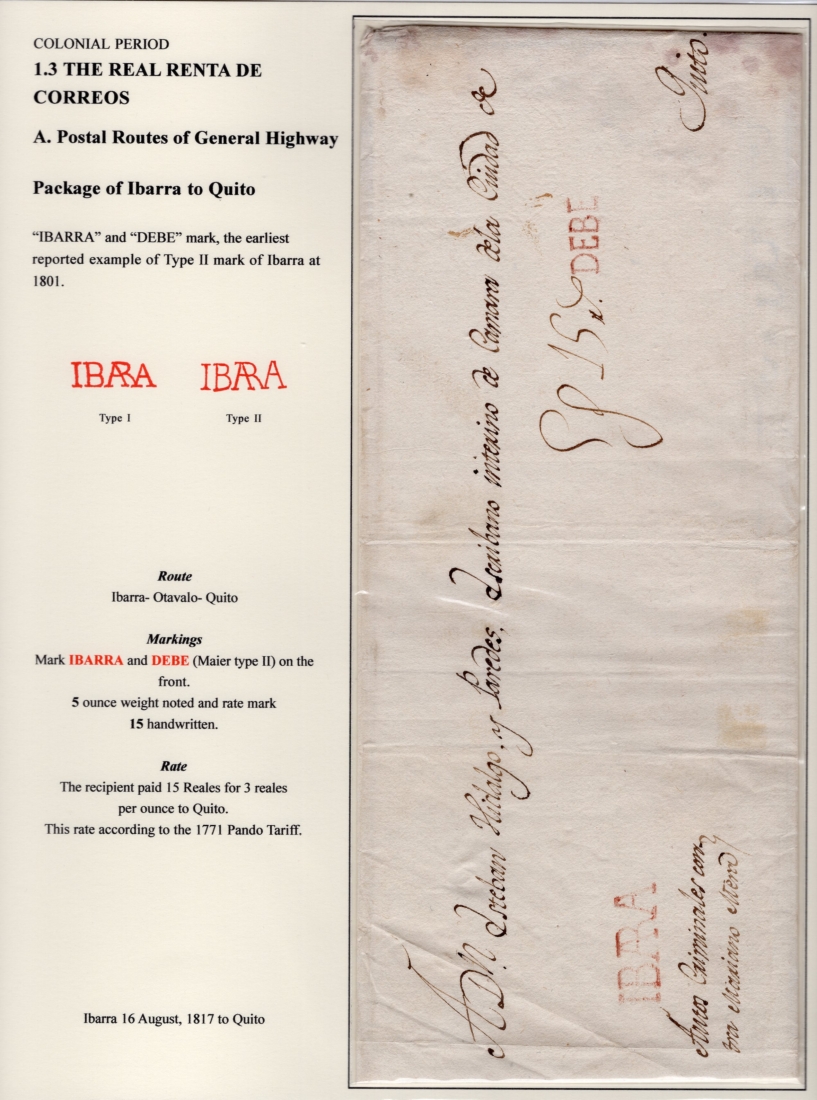 COLONIAL PERIOD
1.3 THE REAL RENTA DE
CORREOS
A. Postal Routes of General Highway
Package of Ibarra to Quito
“IBARRA” and “DEBE” mark, the earliest
reported example of Type II mark of Ibarra at
1801.
IBARRA IBARRA
Type I Type II
Route
Ibarra- Otavalo- Quito
Markings
Mark IBARRA and DEBE (Maier type II) on the
front.
5 ounce weight noted and rate mark
15 handwritten.
Rate
The recipient paid 15 Reales for 3 reales
per ounce to Quito.
This rate according to the 1771 Pando Tariff.
Ibarra 16 August, 1817 to Quito
A Dn. Esteban Hidalgo, y Paredes, Escribano interino de Camara dela Ciudad de
Quito.
15
DEBE
IBARRA
Autos Criminales con
tra Mariano